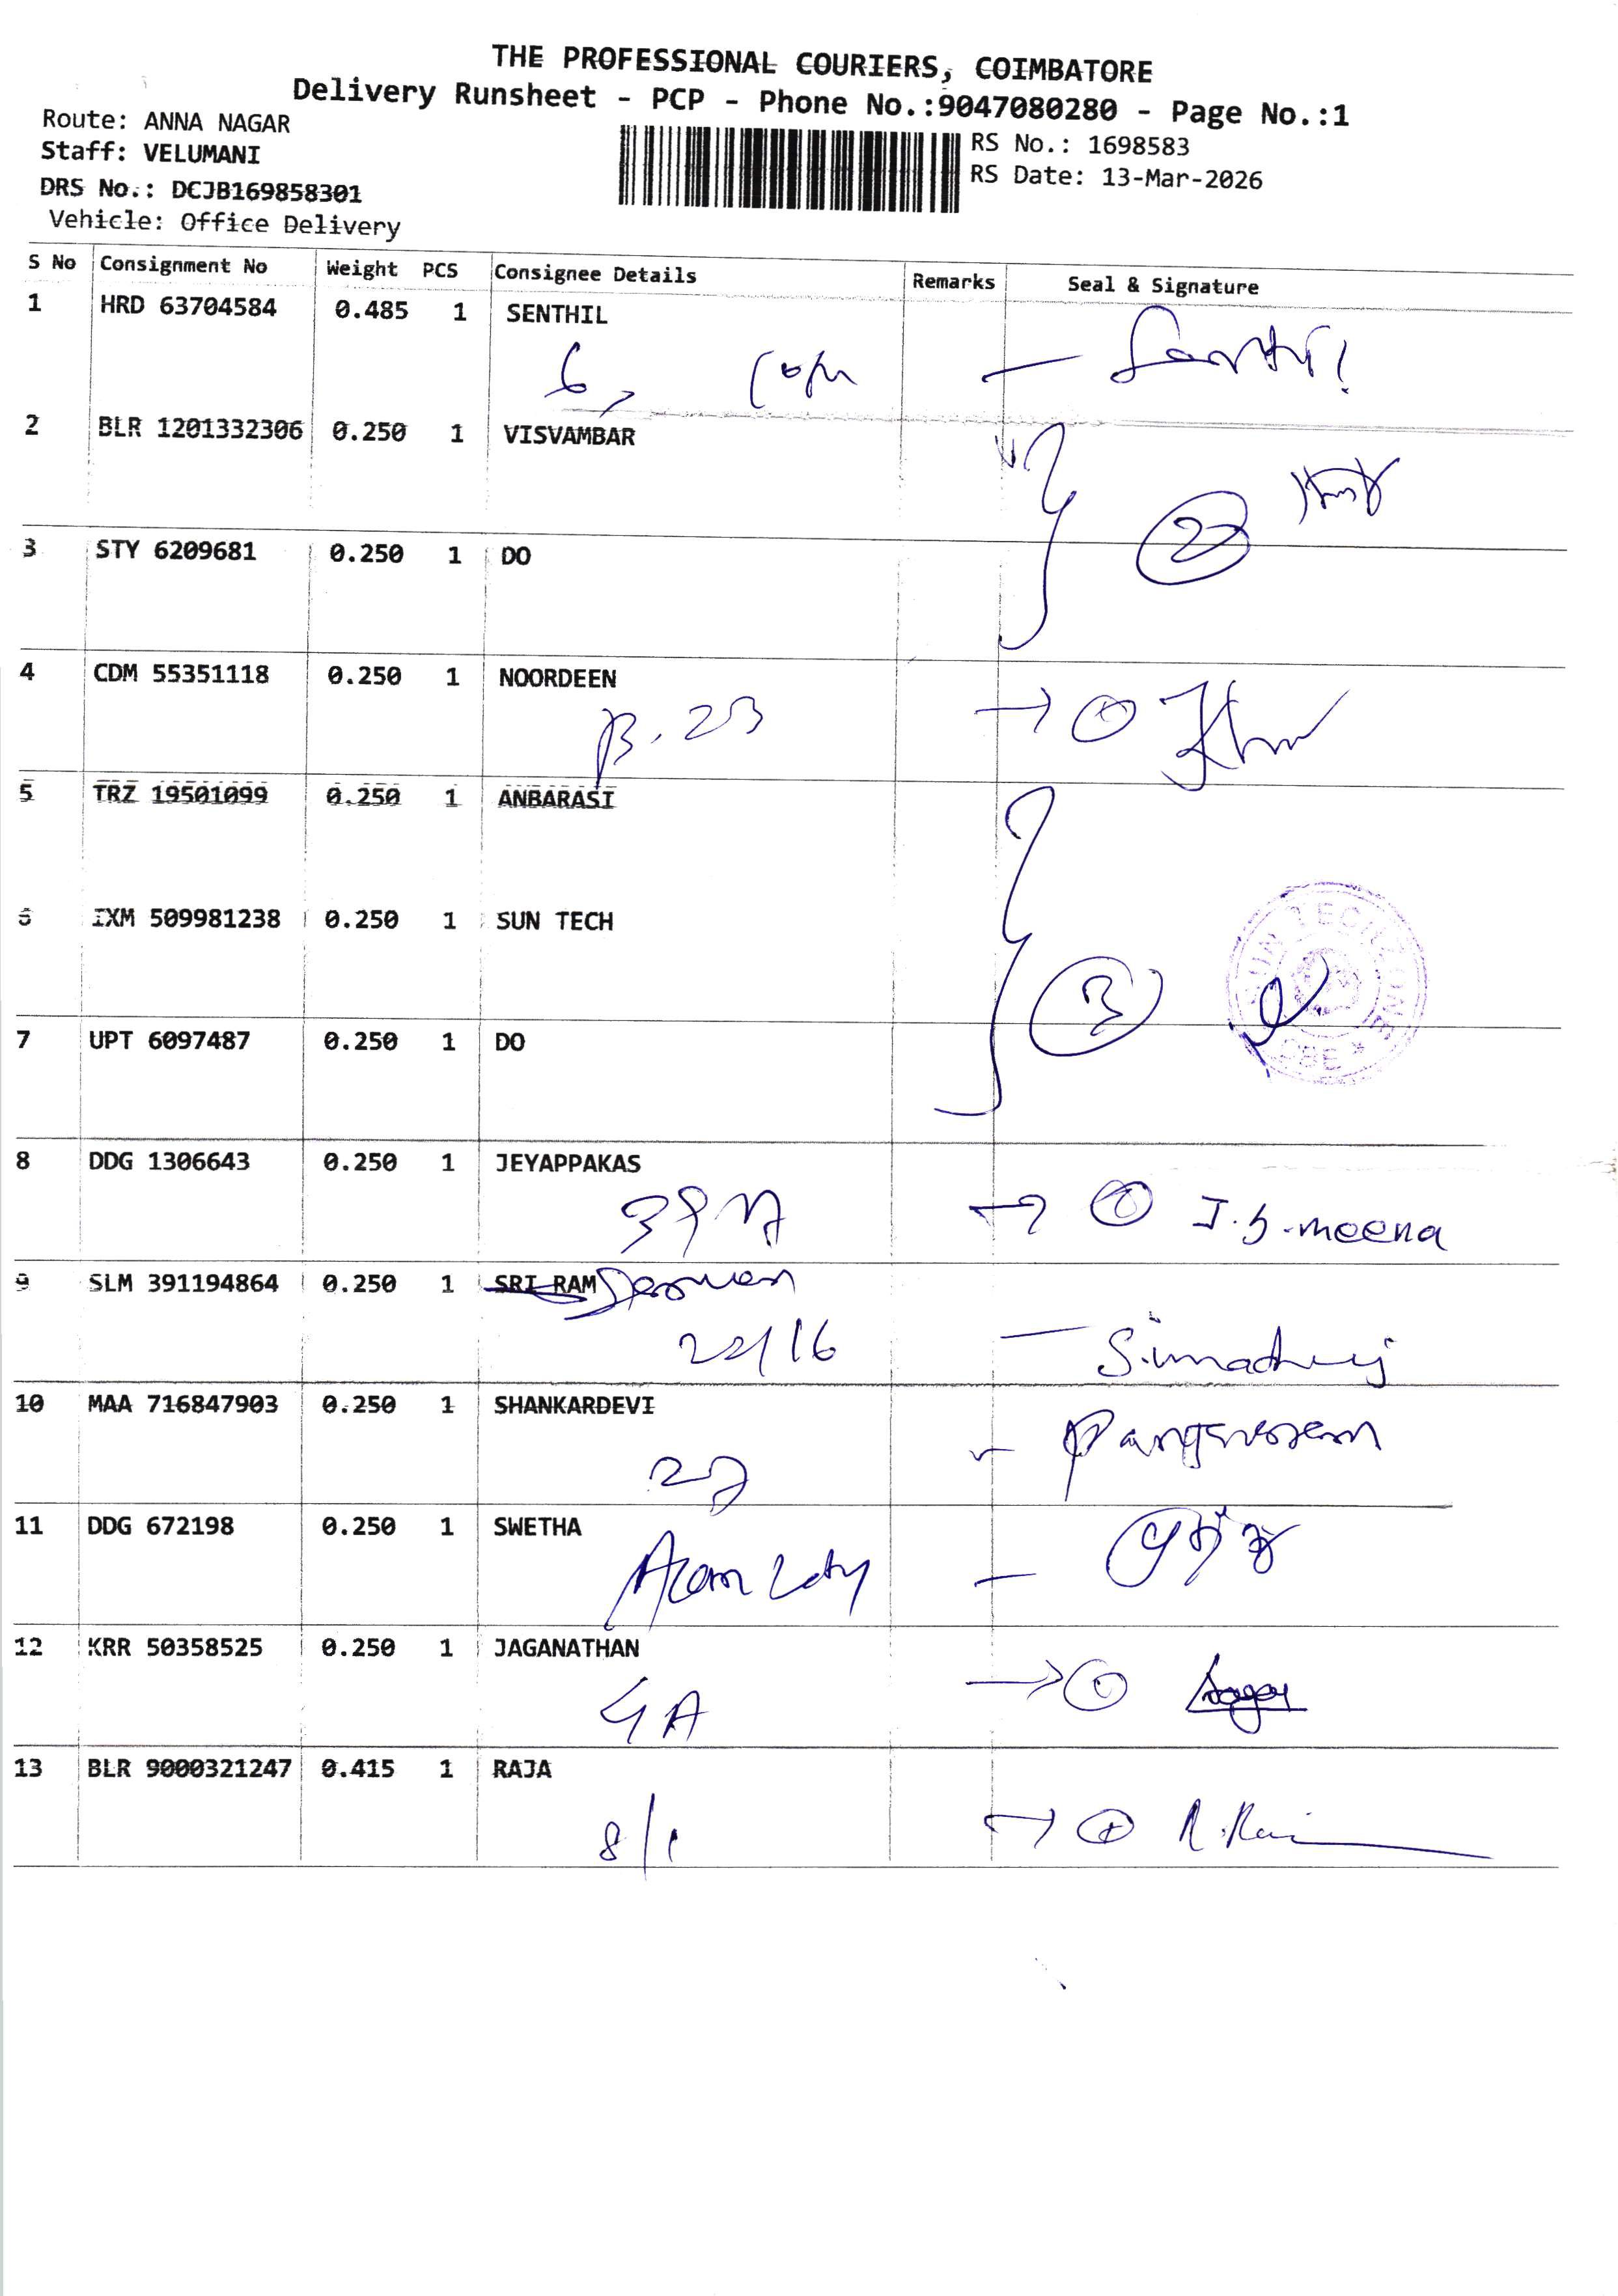 THE PROFESSIONAL COURIERS, COIMBATORE
Delivery Runsheet - PCP - Phone No.:9047080280 - Page No.:1
Route: ANNA NAGAR
Staff: VELUMANI
DRS No.: DCJB169858301
Vehicle: Office Delivery
RS No.: 1698583
RS Date: 13-Mar-2026
S No Consignment No Weight PCS Consignee Details Remarks Seal & Signature
1 HRD 63704584 0.485 1 SENTHIL
6,
2 BLR 1201332306 0.250 1 VISVAMBAR
2
3 STY 6209681 0.250 1 DO
4 CDM 55351118 0.250 1 NOORDEEN
B.23
5 TRZ 19501099 0.250 1 ANBARASI
6 IXM 509981238 0.250 1 SUN TECH
3
7 UPT 6097487 0.250 1 DO
8 DDG 1306643 0.250 1 JEYAPPAKAS
39 → 1 J.S.meena
9 SLM 391194864 0.250 1 SRI RAM
22/16
10 MAA 716847903 0.250 1 SHANKARDEVI
11 DDG 672198 0.250 1 SWETHA
12 KRR 50358525 0.250 1 JAGANATHAN
4A →
13 BLR 9000321247 0.415 1 RAJA
8/1 →